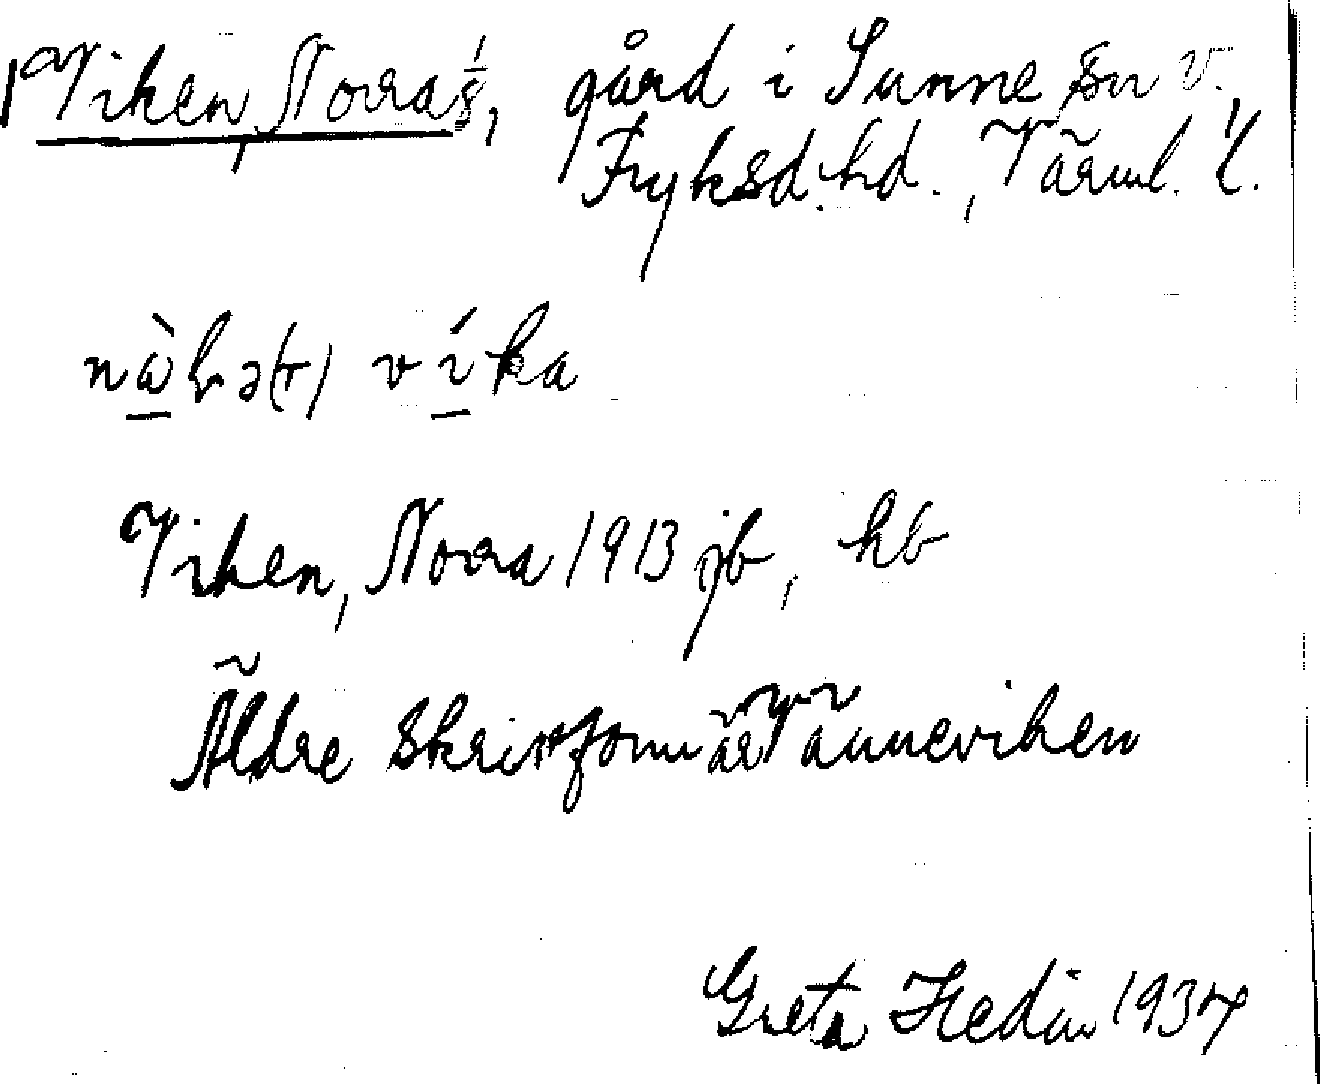 Viken, Norra 1/8, gård i Sunne sn v.
Fryksd. hd., Värml. l.
víka
Viken, Norra 1913 jb, hb
Äldre skriftform är Vänneviken
Greta Hedin 1937